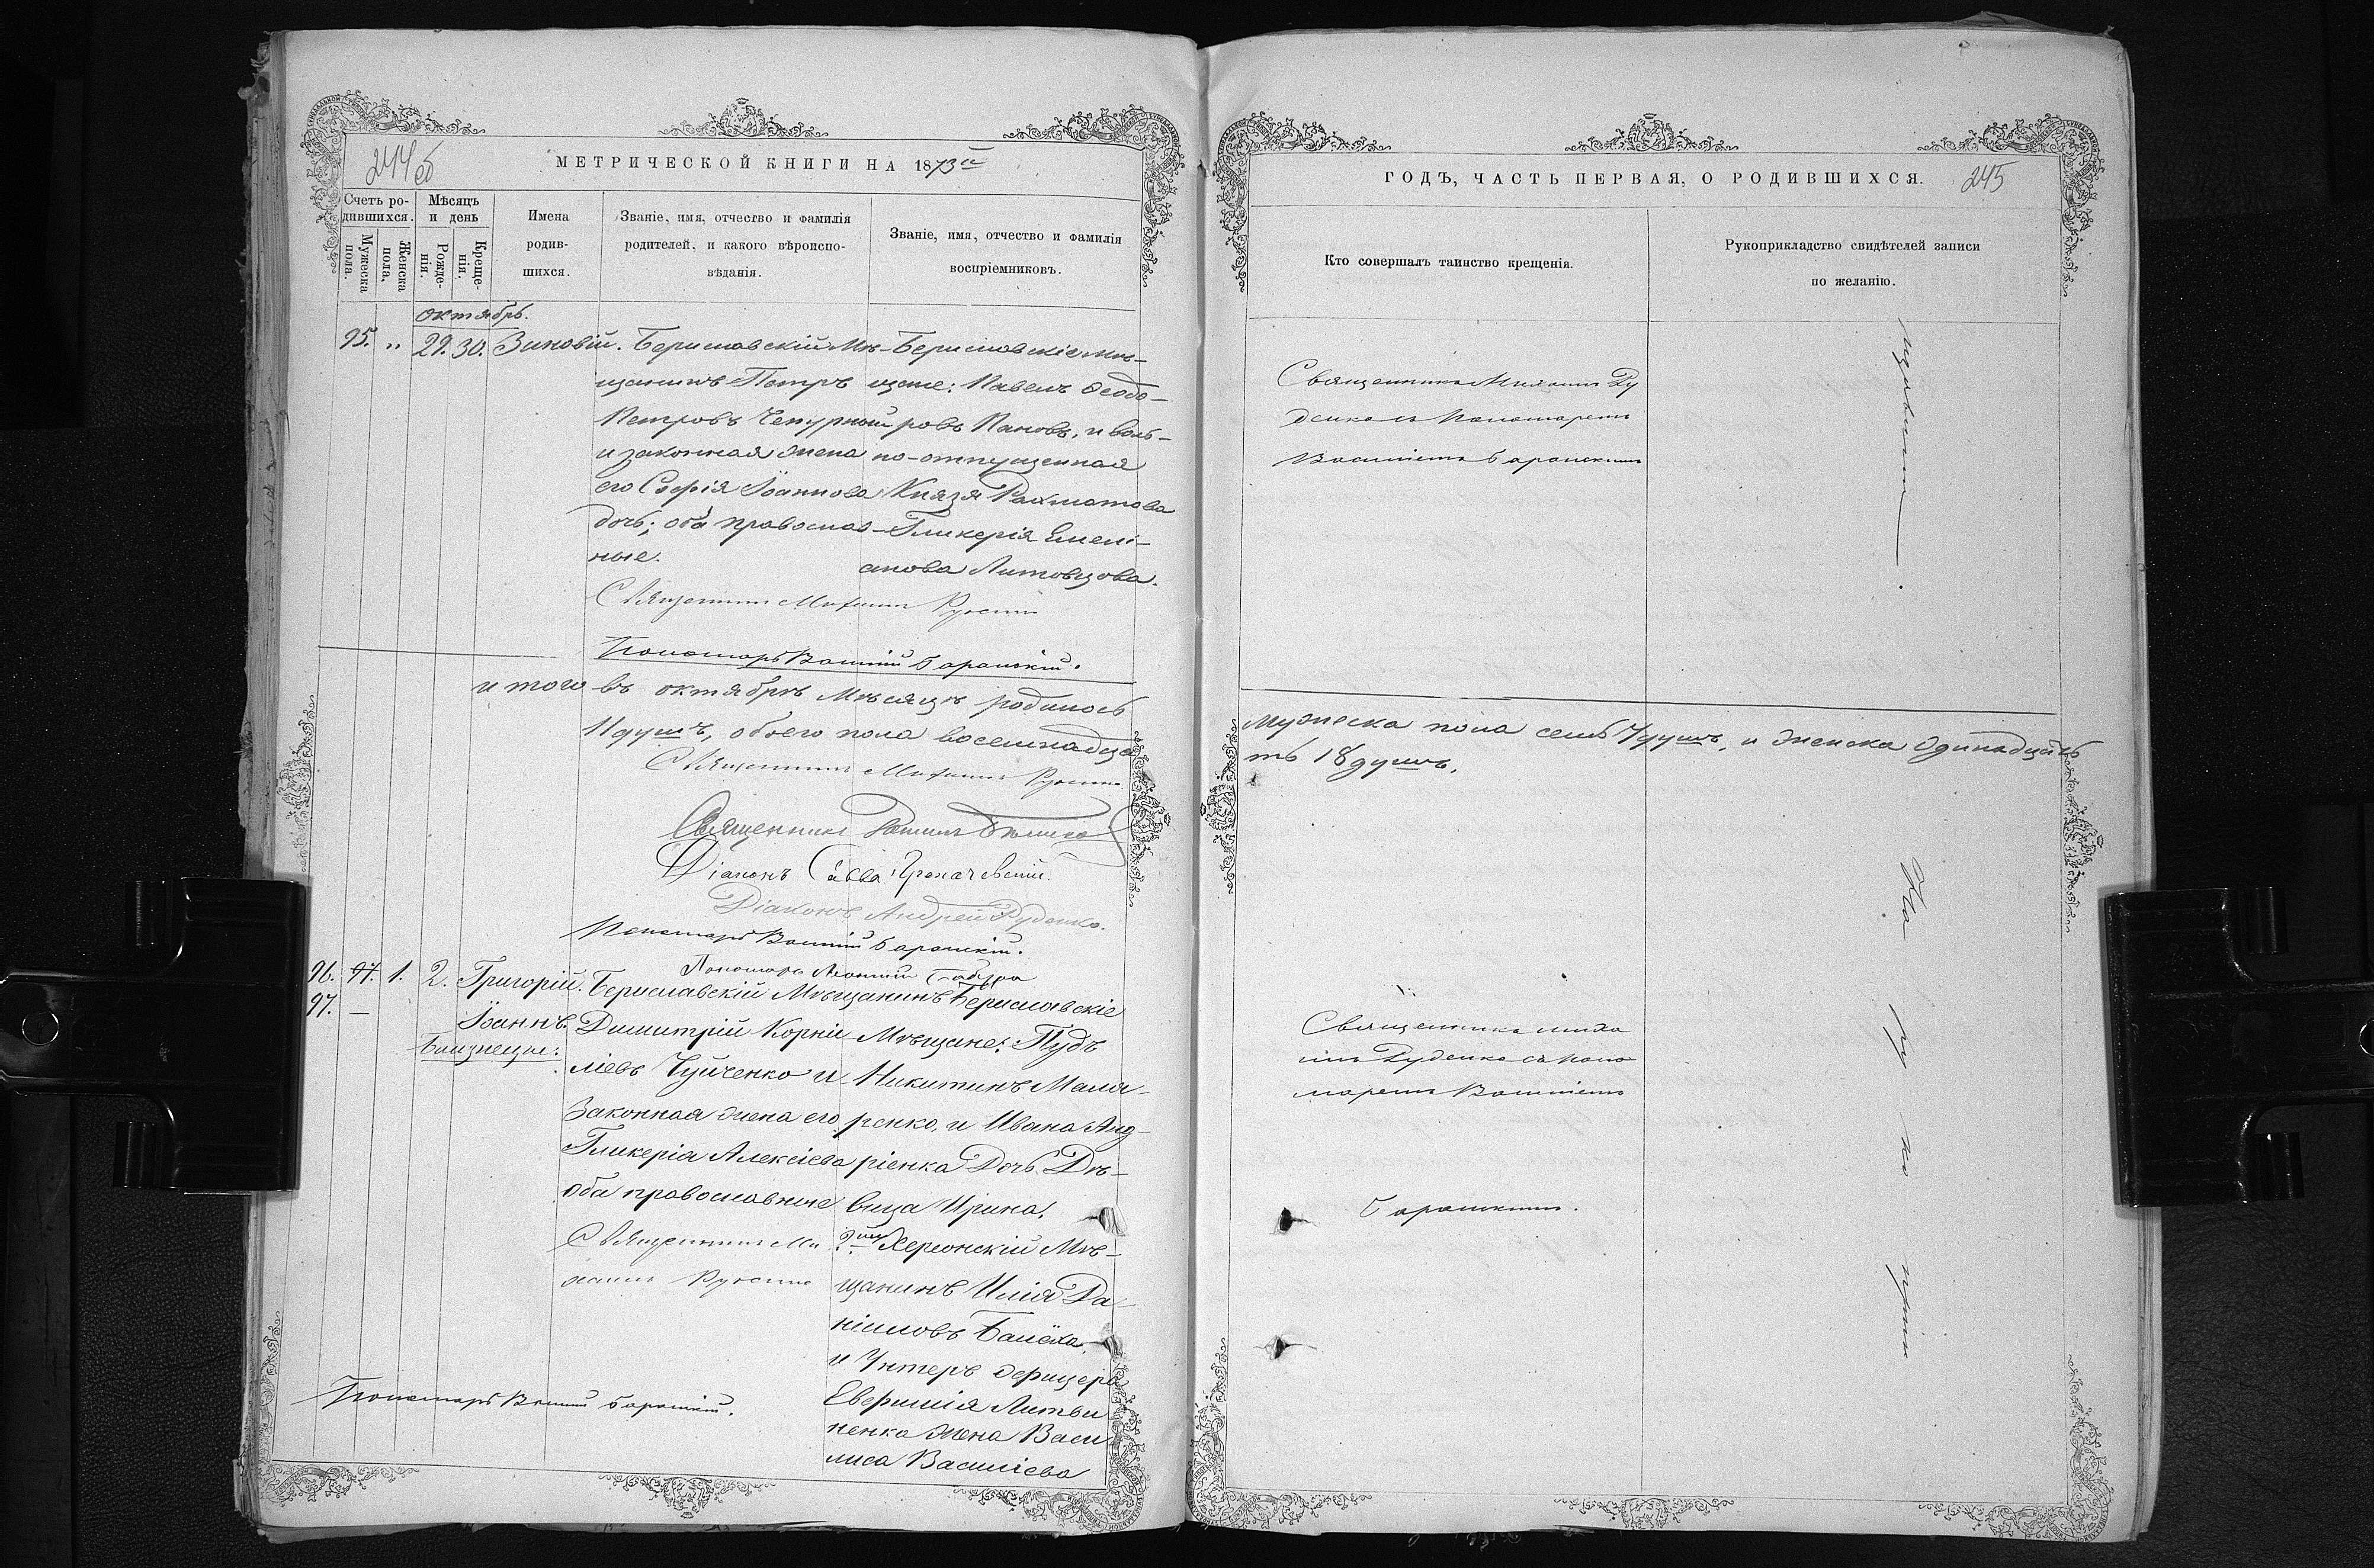 244об
МЕТРИЧЕСКОЙ КНИГИ НА 1873й
Счетъ ро-
дившихся.
Мужеска пола.
Женска пола.
Мѣсяцъ
и день
Рожде-
нія.
Креще-
нія.
Имена
родив-
шихся.
Званіе, имя, отчество и фамилія
родителей, и какого вѣроиспо-
вѣданія.
Званіе, имя, отчество и фамилія
воспріемниковъ.
октябрь.
95. „ 29. 30. Зиновій.
Бериславскій мѣ-
щанинъ Петръ
Петровъ Чепурный
и законная жена
его Софія Іоаннова
дочь; оба православ-
ные.
Бериславскіе мѣ-
щане: Павелъ Ѳеодо-
ровъ Пановъ, и воль-
но-отпущенная
Князя Рахматова
Гликерія Емелі-
анова Литовцова.
Священникъ Михаилъ Руденко
Пономарь Василій Баранскій.
итого въ октябрѣ мѣсяцѣ родилось
11 душъ, обоего пола восемнадца
Священникъ Михаилъ Руденко
Священникъ
Діаконъ Савва
Діаконъ Андрей Руденко.
Пономарь Василій Баранскій.
Пономарь
96. 97. 1. 2. Григорій.
97. — Іоаннъ.
Близнецы:
Бериславскій Мѣщанинъ
Димитрій Корни-
ліевъ Чуйченко и
Законная жена его
Гликерія Алексіева
оба православные
Бериславскіе
Мѣщане: Пудъ
Никитинъ Маля-
ренко, и Ивана Анд-
ріенка Дочь Дѣ-
вица Ирина.
Священникъ Ми
хаилъ Руденко
2му Херсонскій Мѣ-
щанинъ Илія Да-
ніиловъ
и Унтеръ офицера
Евфимія Литви
ненка жена Васи
лиса Василіева
Пономарь Василій Баранскій.
ГОДЪ, ЧАСТЬ ПЕРВАЯ, О РОДИВШИХСЯ.
245
Кто совершалъ таинство крещенія.
Рукоприкладство свидѣтелей записи
по желанію.
Священникъ Михаилъ Ру
денко съ Пономаремъ
Василіемъ Баранскимъ
Мужеска пола семь 7 душъ, и женска Одинадцать
ть 18 душъ.
Священникъ Миха
илъ Руденко съ Поно
маремъ Василіемъ
Баранскимъ.